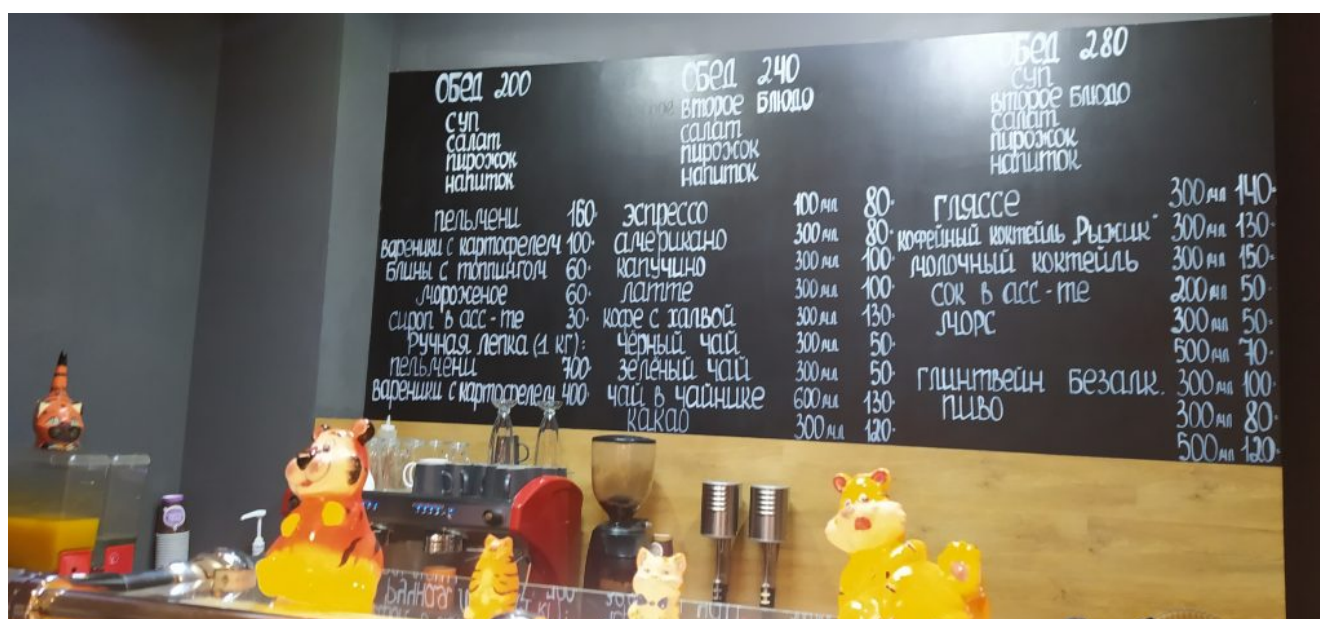 ОБЕД 200
суп
салат
пирожок
напиток
ОБЕД 240
второе БЛЮДО
салат
пирожок
напиток
ОБЕД 280
суп
второе БЛЮДО
салат
пирожок
напиток
пельмени 160-
вареники с картофелем 100-
блины с топпингом 60-
мороженое 60-
сироп в асс-те 30-
Ручная лепка (1 кг):
пельмени 700-
вареники с картофелем 400-
эспрессо 100 мл 80-
американо 300 мл 80-
капучино 300 мл 100-
латте 300 мл 100-
кофе с халвой 300 мл 130-
чёрный чай 300 мл 50-
зелёный чай 300 мл 50-
чай в чайнике 600 мл 130-
какао 300 мл 120-
гляссе 300 мл 140-
кофейный коктейль „Рыжик" 300 мл 130-
молочный коктейль 300 мл 150-
сок в асс-те 200 мл 50-
морс 300 мл 50-
500 мл 70-
глинтвейн безалк. 300 мл 100-
пиво 300 мл 80-
500 мл 120-